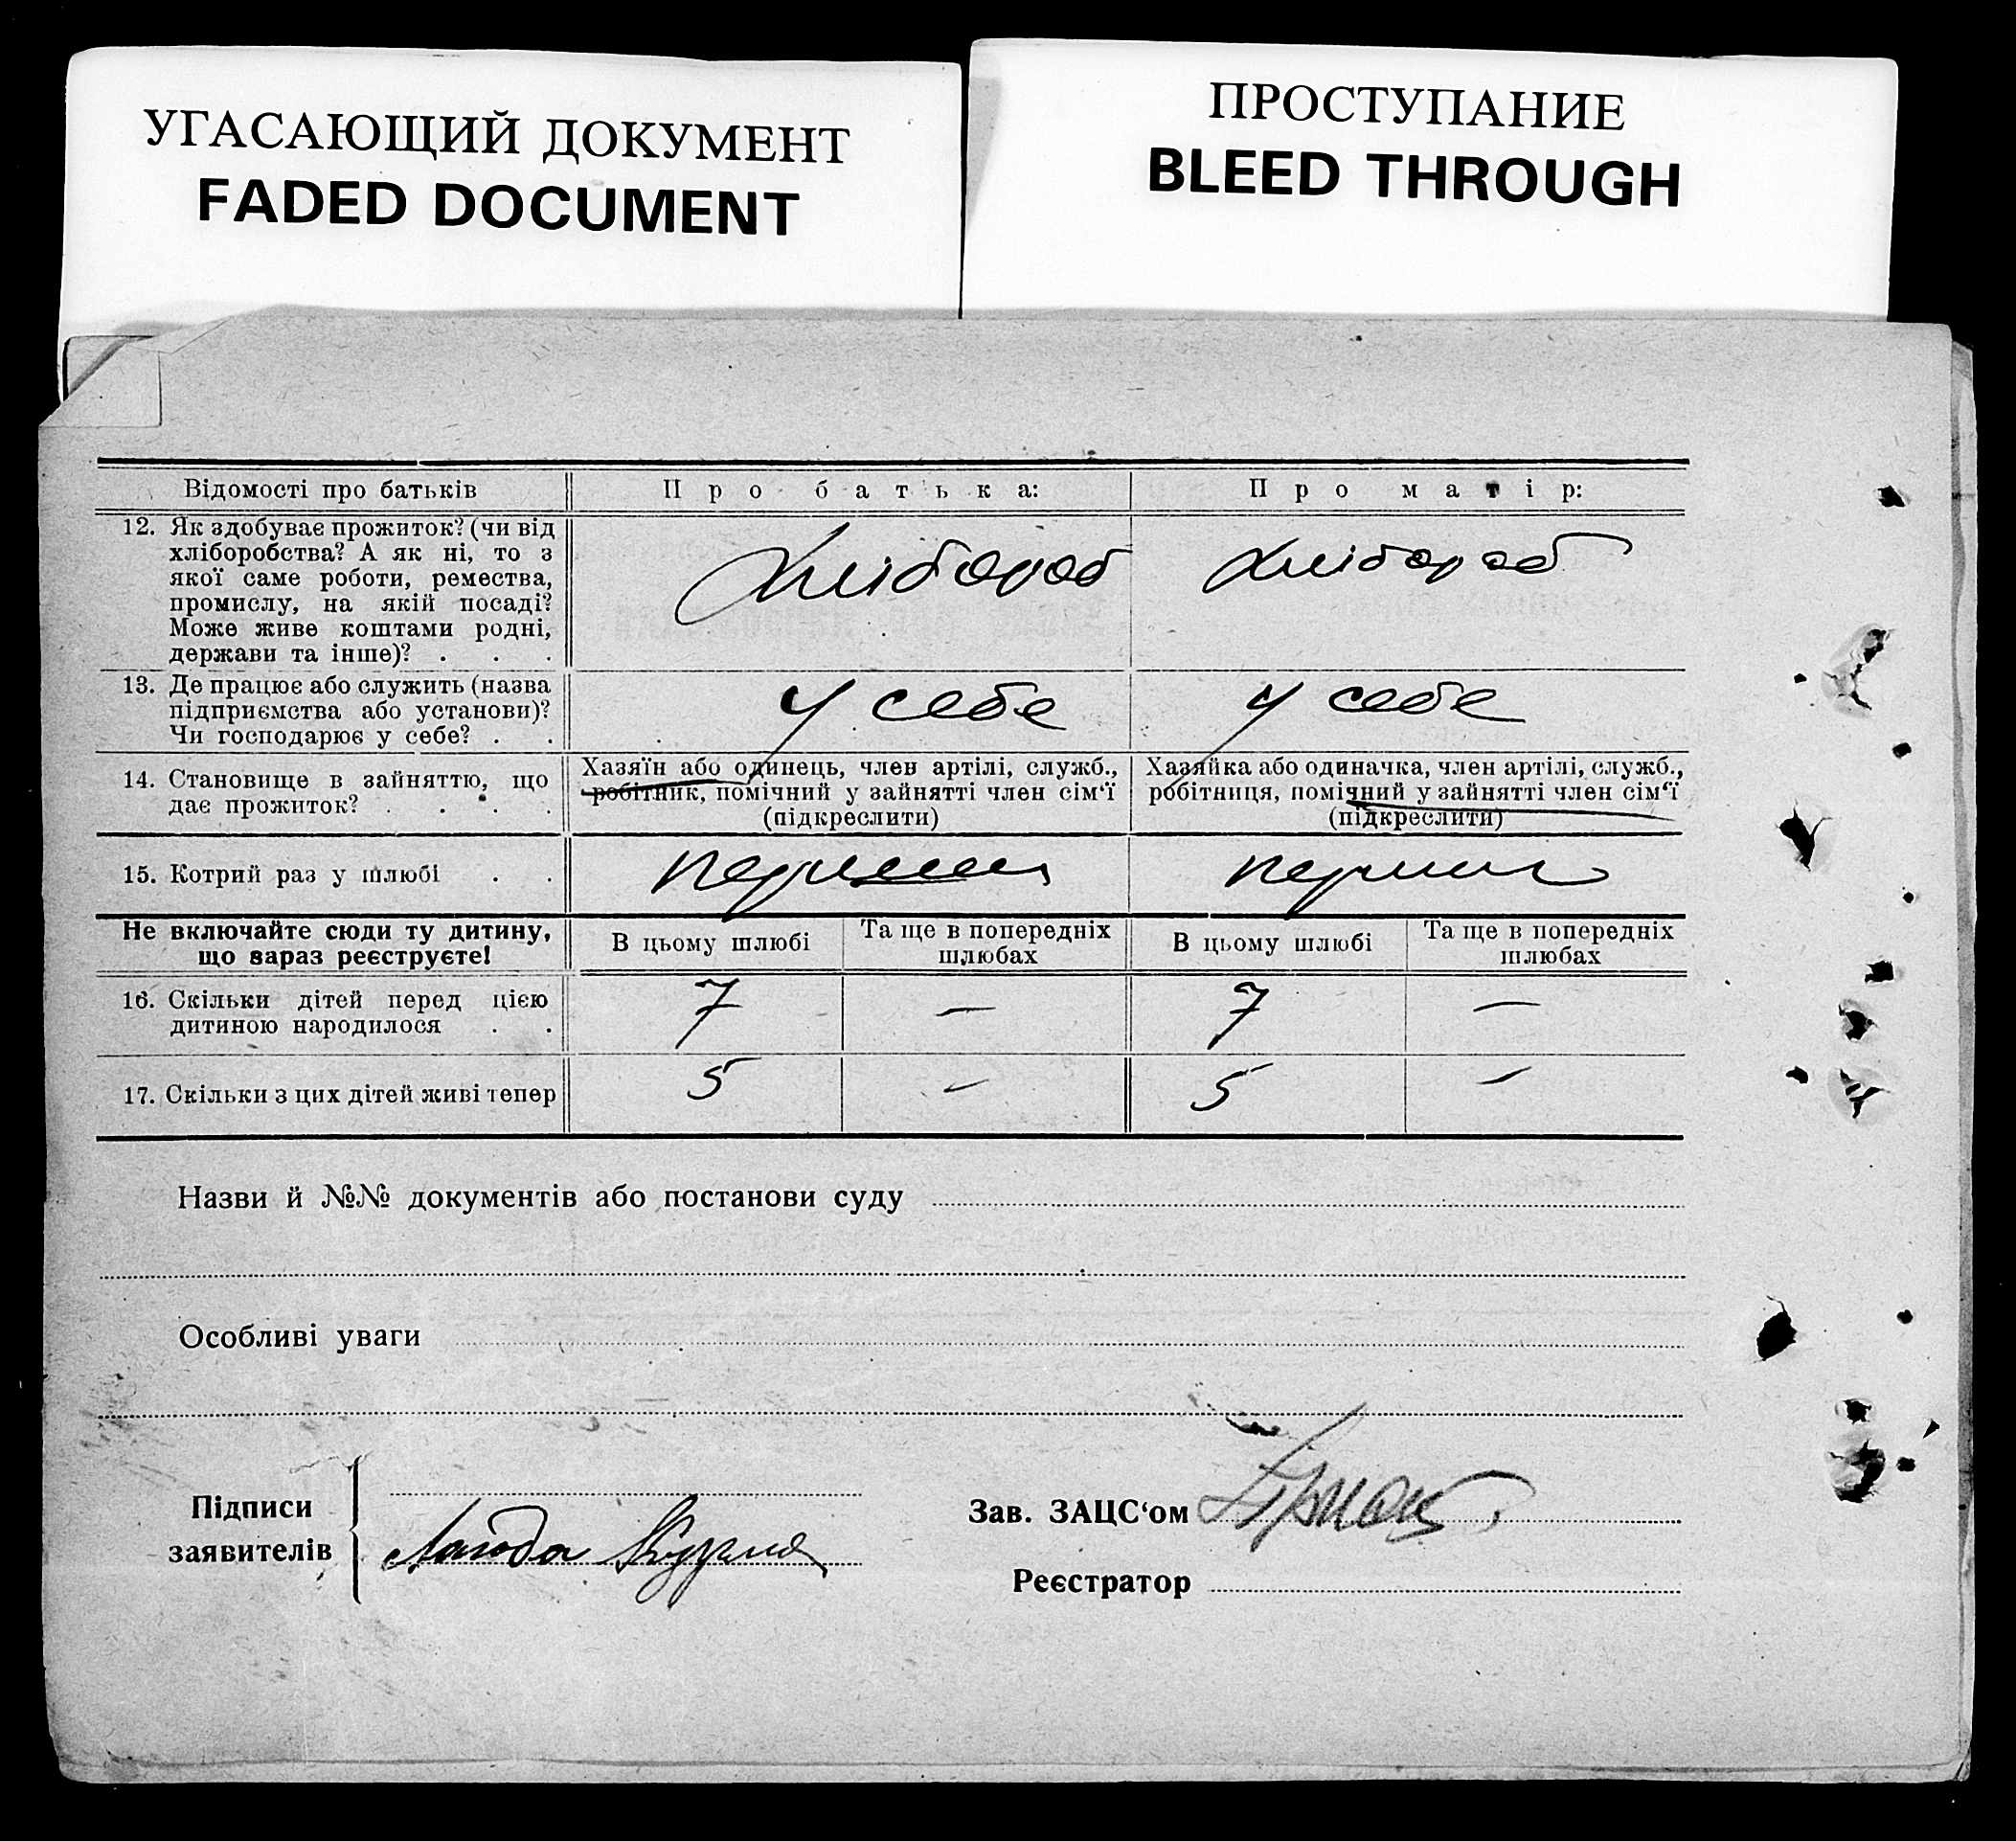 УГАСАЮЩИЙ ДОКУМЕНТ
FADED DOCUMENT
ПРОСТУПАНИЕ
BLEED THROUGH
Відомості про батьків Про батька: Про матір:
12. Як здобуває прожиток? (чи від
хліборобства? А як ні, то з
якої саме роботи, ремества,
промислу, на якій посаді?
Може живе коштами родні,
держави та інше)? . . .
Хлібороб Хлібороб
13. Де працює або служить (назва
підприємства або установи)?
Чи господарює у себе? . .
у себе у себе
14. Становище в зайняттю, що
дає прожиток? . . . .
Хазяїн або одинець, член артілі, служб.,
робітник, помічний у зайнятті член сім‘ї
(підкреслити)
Хазяйка або одиначка, член артілі, служб.,
робітниця, помічний у зайнятті член сім‘ї
(підкреслити)
15. Котрий раз у шлюбі . .
Не включайте сюди ту дитину,
що зараз реєструєте!
В цьому шлюбі
Та ще в попередніх
шлюбах
В цьому шлюбі
Та ще в попередніх
шлюбах
16. Скільки дітей перед цією
дитиною народилося . .
7 — 7 —
17. Скільки з цих дітей живі тепер 5 — 5 —
Назви й №№ документів або постанови суду
Особливі уваги
Підписи
заявителів
Зав. ЗАЦС‘ом
Реєстратор